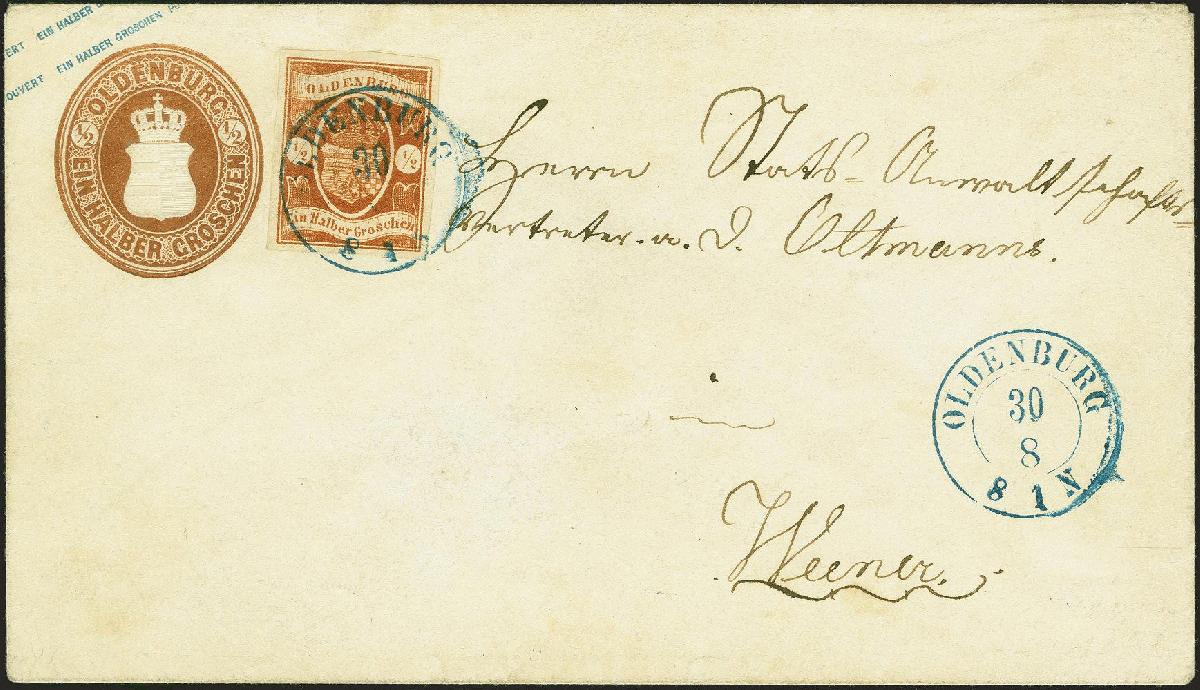 ERT EIN HALBER
OUVERT EIN HALBER GROSCHEN
OLDENBURG
½ ½
EIN HALBER GROSCHEN
OLDENBURG
½ ½
Ein Halber Groschen
OLDENBURG
30
8 1
Herrn Stats-Anwaltschafts-
Vertreter. a. D. Oltmanns.
in
Weener.
OLDENBURG
30
8
8 1 N